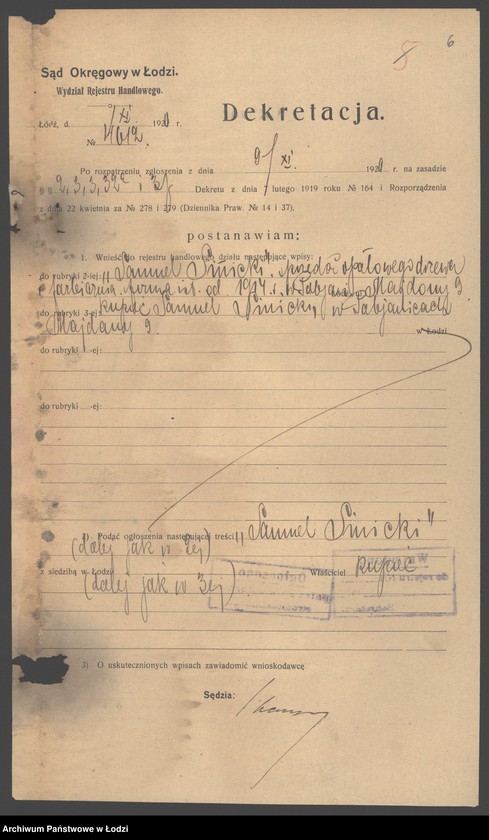 5 6
Sąd Okręgowy w Łodzi.
Wydział Rejestru Handlowego.
Dekretacja.
Łódź, d. 9/XI 1920 r.
№ 4612.
Po rozpatrzeniu zgłoszenia z dnia 9/XI. 1920 r. na zasadzie
2, 3, 3, 32 i Dekretu z dnia 7 lutego 1919 roku № 164 i Rozporządzenia
z dnia 22 kwietnia za № 278 i 279 (Dziennika Praw. № 14 i 37),
postanawiam:
1. Wnieść do rejestru handlowego działu następujące wpisy:
do rubryki 2-iej: „Samuel Sinicki", sprzedaż opałowego drzewa
i farbiarnia, firma ist. od 19 r. w Pabjanicach Majdany 9
do rubryki 3-ej: kupiec Samuel Sinicki, w Pabjanicach
Majdany 9 w Łodzi
do rubryki -ej:
do rubryki -ej:
2) Podać ogłoszenia następującej treści: „Samuel Sinicki"
(dalej jak w 2ej)
z siedzibą w Łodzi Właściciel kupiec
(dalej jak w 3ej)
3) O uskutecznionych wpisach zawiadomić wnioskodawcę
Sędzia:
Archiwum Państwowe w Łodzi